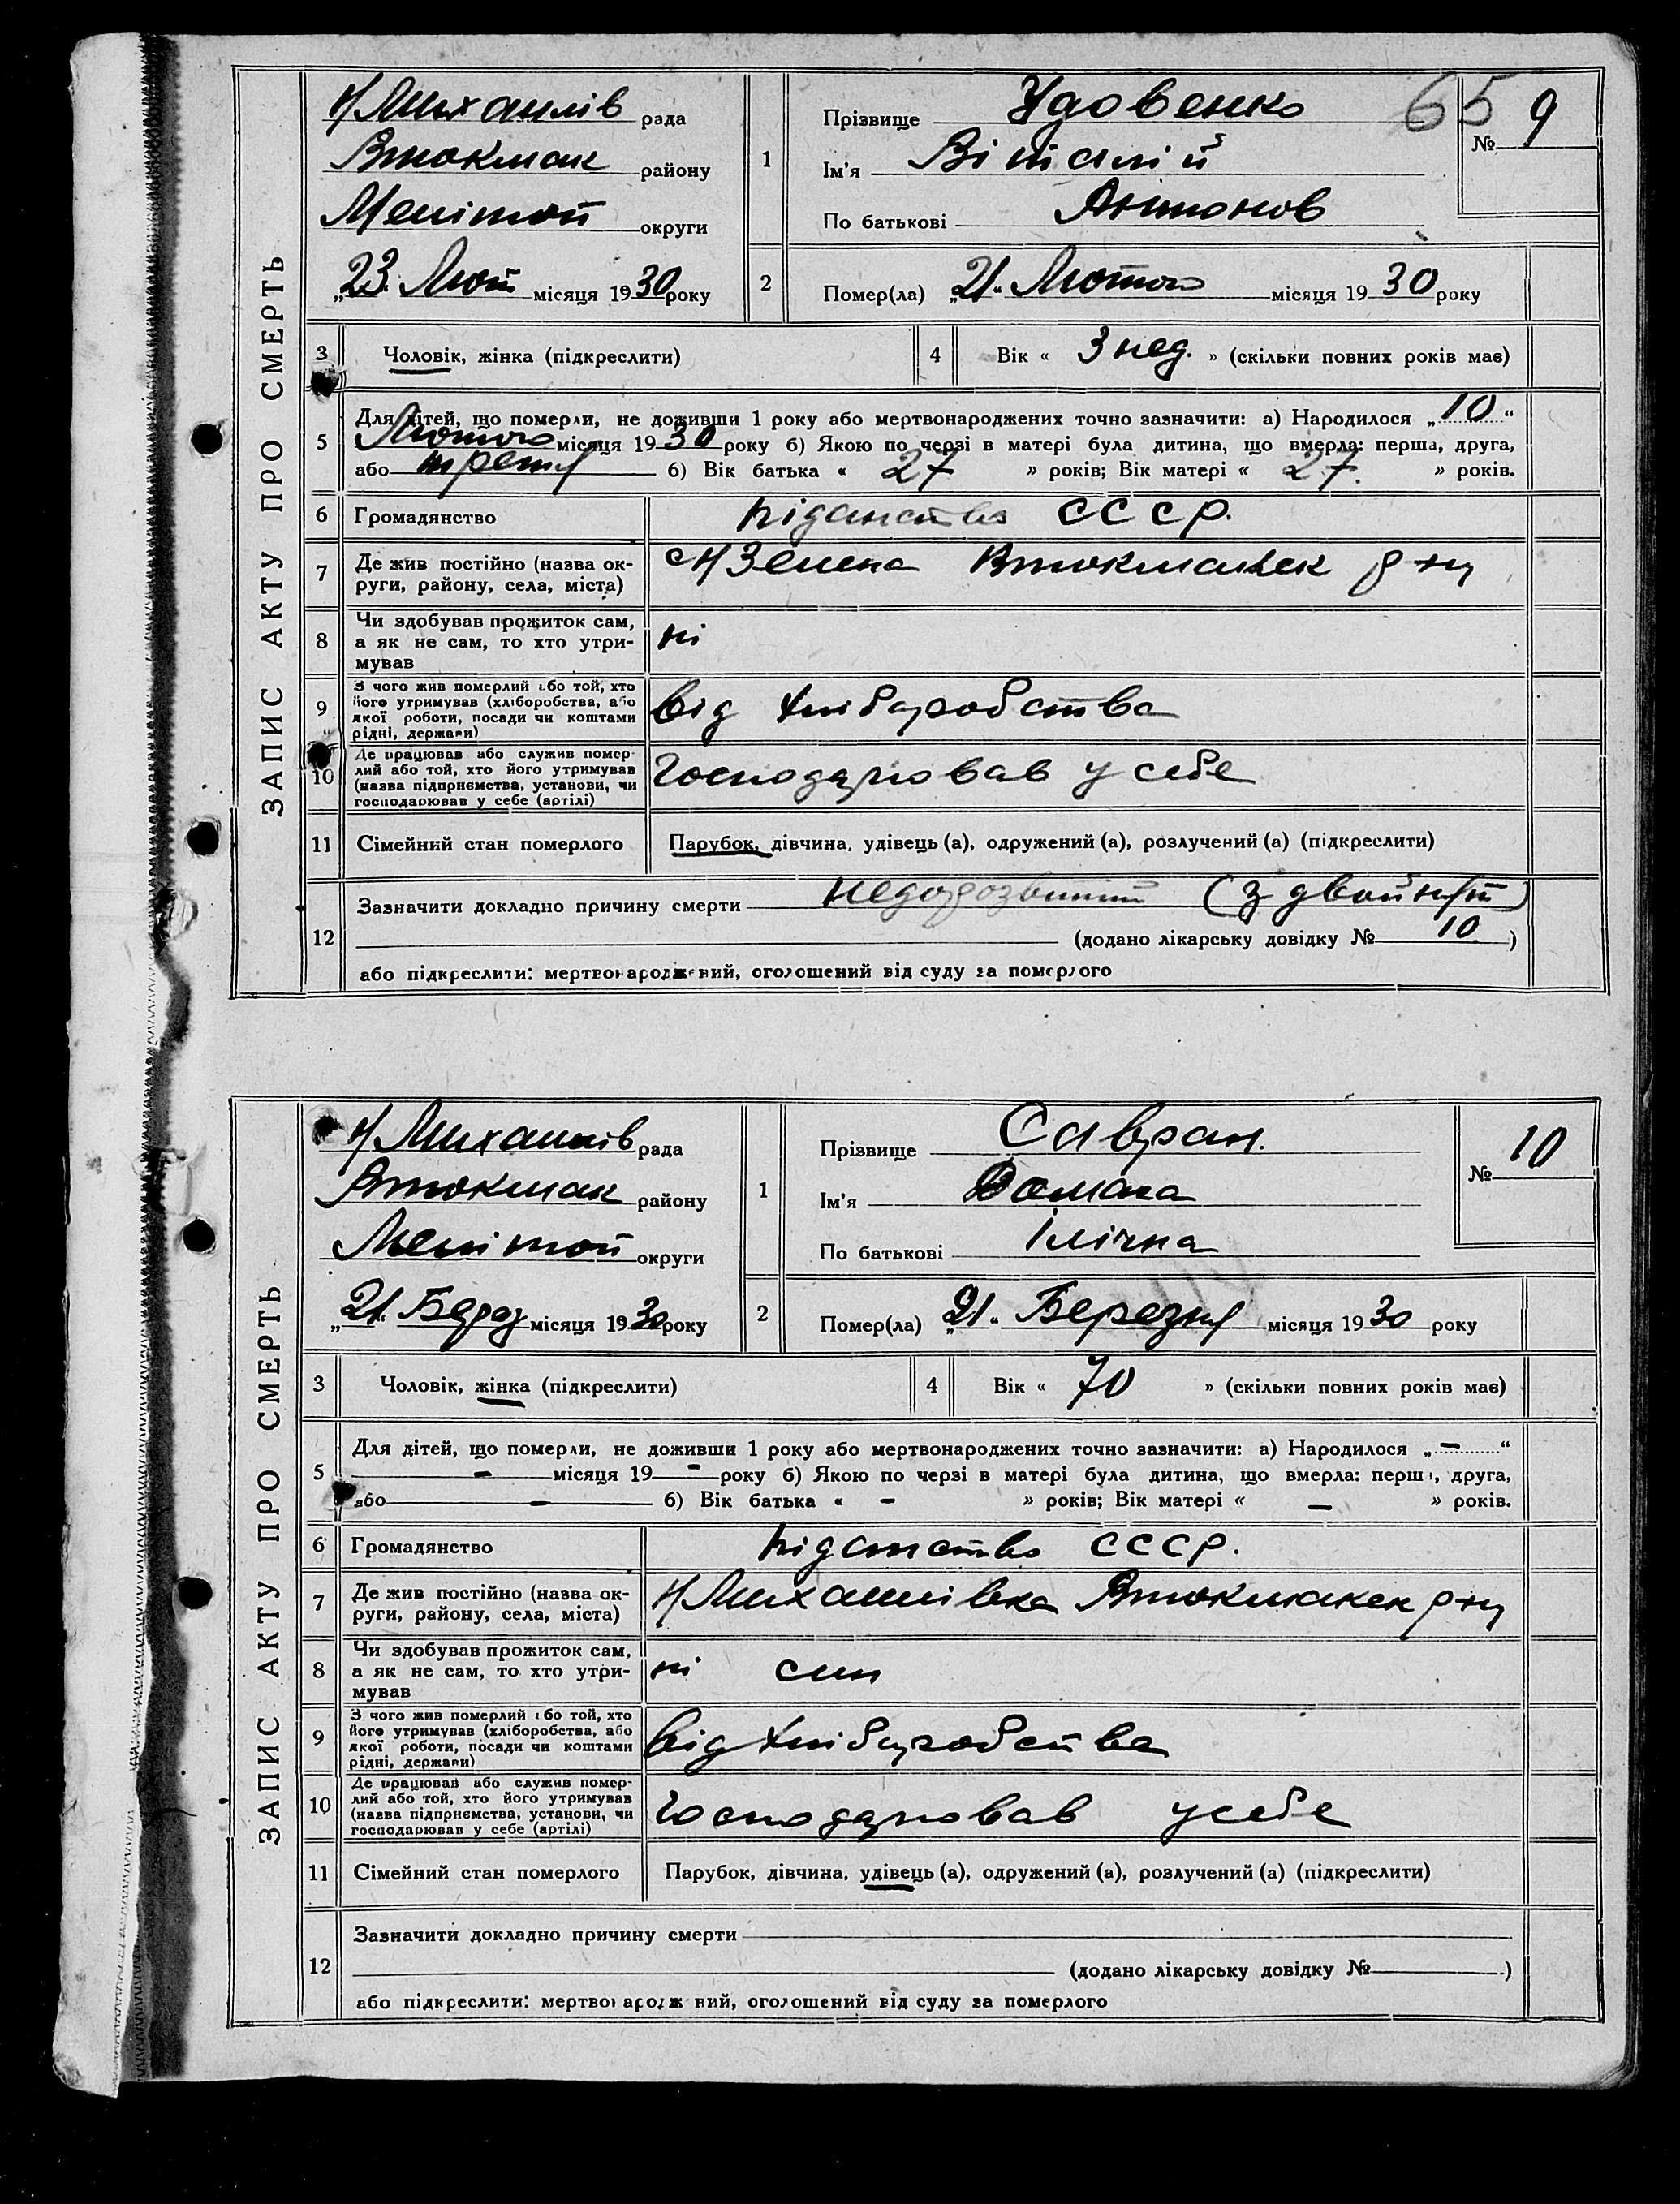 ЗАПИС АКТУ ПРО СМЕРТЬ
Н/Михайлів рада
Втокмак району
Меліт округи
„23" Лют місяця 1930 року
65
№ 9
1
Прізвище Удовенко
Ім'я Віталій
По батькові Антонов
2
Помер(ла) „21" Лютого місяця 1930 року
3 Чоловік, жінка (підкреслити)
4 Вік « 3 нед. » (скільки повних років має)
5 Для дітей, що померли, не доживши 1 року або мертвонароджених точно зазначити: а) Народилося „10"
Лютого місяця 1930 року б) Якою по черзі в матері була дитина, що вмерла: перша, друга,
або третя б) Вік батька « 27 » років; Вік матері « 27. » років.
6 Громадянство підданство СССР.
7 Де жив постійно (назва ок-
руги, району, села, міста)
с Н Зелена Втокмацек р-ну
8 Чи здобував прожиток сам,
а як не сам, то хто утри-
мував
ні
9 З чого жив померлий або той, хто
його утримував (хліборобства, або
якої роботи, посади чи коштами
рідні, держави)
від хліборобства
10 Де працював або служив помер-
лий або той, хто його утримував
(назва підприємства, установи, чи
господарював у себе (артілі)
Господарював у себе
11 Сімейний стан померлого
Парубок, дівчина, удівець (а), одружений (а), розлучений (а) (підкреслити)
12 Зазначити докладно причину смерти (з двойнят)
(додано лікарську довідку № 10.)
або підкреслити: мертвонароджений, оголошений від суду за померлого
ЗАПИС АКТУ ПРО СМЕРТЬ
Н/Михайлів рада
Втокмак району
Меліт округи
„21" Берез місяця 1930 року
№ 10
1
Прізвище Савран.
Ім'я Домаха
По батькові Ілічна
2
Помер(ла) „21" Березня місяця 1930 року
3 Чоловік, жінка (підкреслити)
4 Вік « 70 » (скільки повних років має)
5 Для дітей, що померли, не доживши 1 року або мертвонароджених точно зазначити: а) Народилося „ – "
– місяця 19 – року б) Якою по черзі в матері була дитина, що вмерла: перша, друга,
або – б) Вік батька « – » років; Вік матері « – » років.
6 Громадянство підданство СССР.
7 Де жив постійно (назва ок-
руги, району, села, міста)
Н/Михайлівка Втокмацек р-ну
8 Чи здобував прожиток сам,
а як не сам, то хто утри-
мував
ні син
9 З чого жив померлий або той, хто
його утримував (хліборобства, або
якої роботи, посади чи коштами
рідні, держави)
від хліборобства
10 Де працював або служив помер-
лий або той, хто його утримував
(назва підприємства, установи, чи
господарював у себе (артілі)
Господарював у себе
11 Сімейний стан померлого
Парубок, дівчина, удівець (а), одружений (а), розлучений (а) (підкреслити)
12 Зазначити докладно причину смерти
(додано лікарську довідку № )
або підкреслити: мертвонароджений, оголошений від суду за померлого